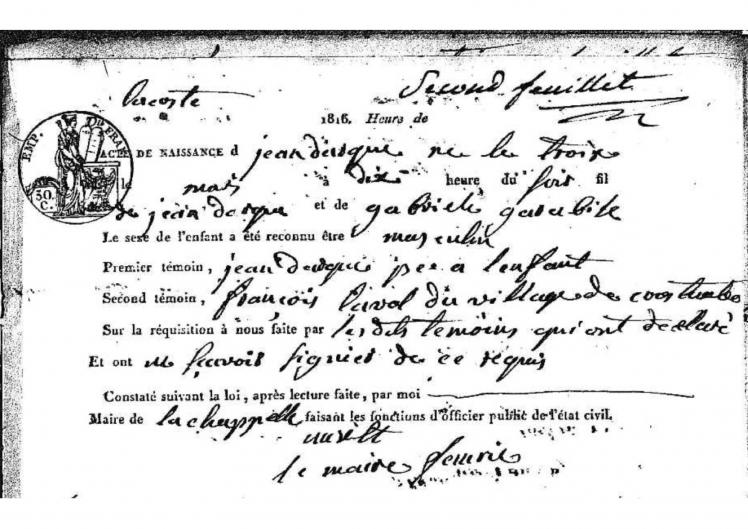 Second feuillet
lacoste
1816. Heure de
EMP. FRAN
ACTE DE NAISSANCE d jean dasque ne le troix
le mais à dix heure du soir fil
30. C. de jean dasque et de gabriele
Le sexe de l'enfant a été reconnu être masculin
Premier témoin, jean dasque per a lenfant
Second témoin, françois laval du village de
Sur la réquisition à nous faite par lesdits temoins qui ont declaré
Et ont ne sçavoir signier de ce requis
Constaté suivant la loi, après lecture faite, par moi
Maire de lachappelle faisant les fonctions d'officier public de l'état civil.
le maire